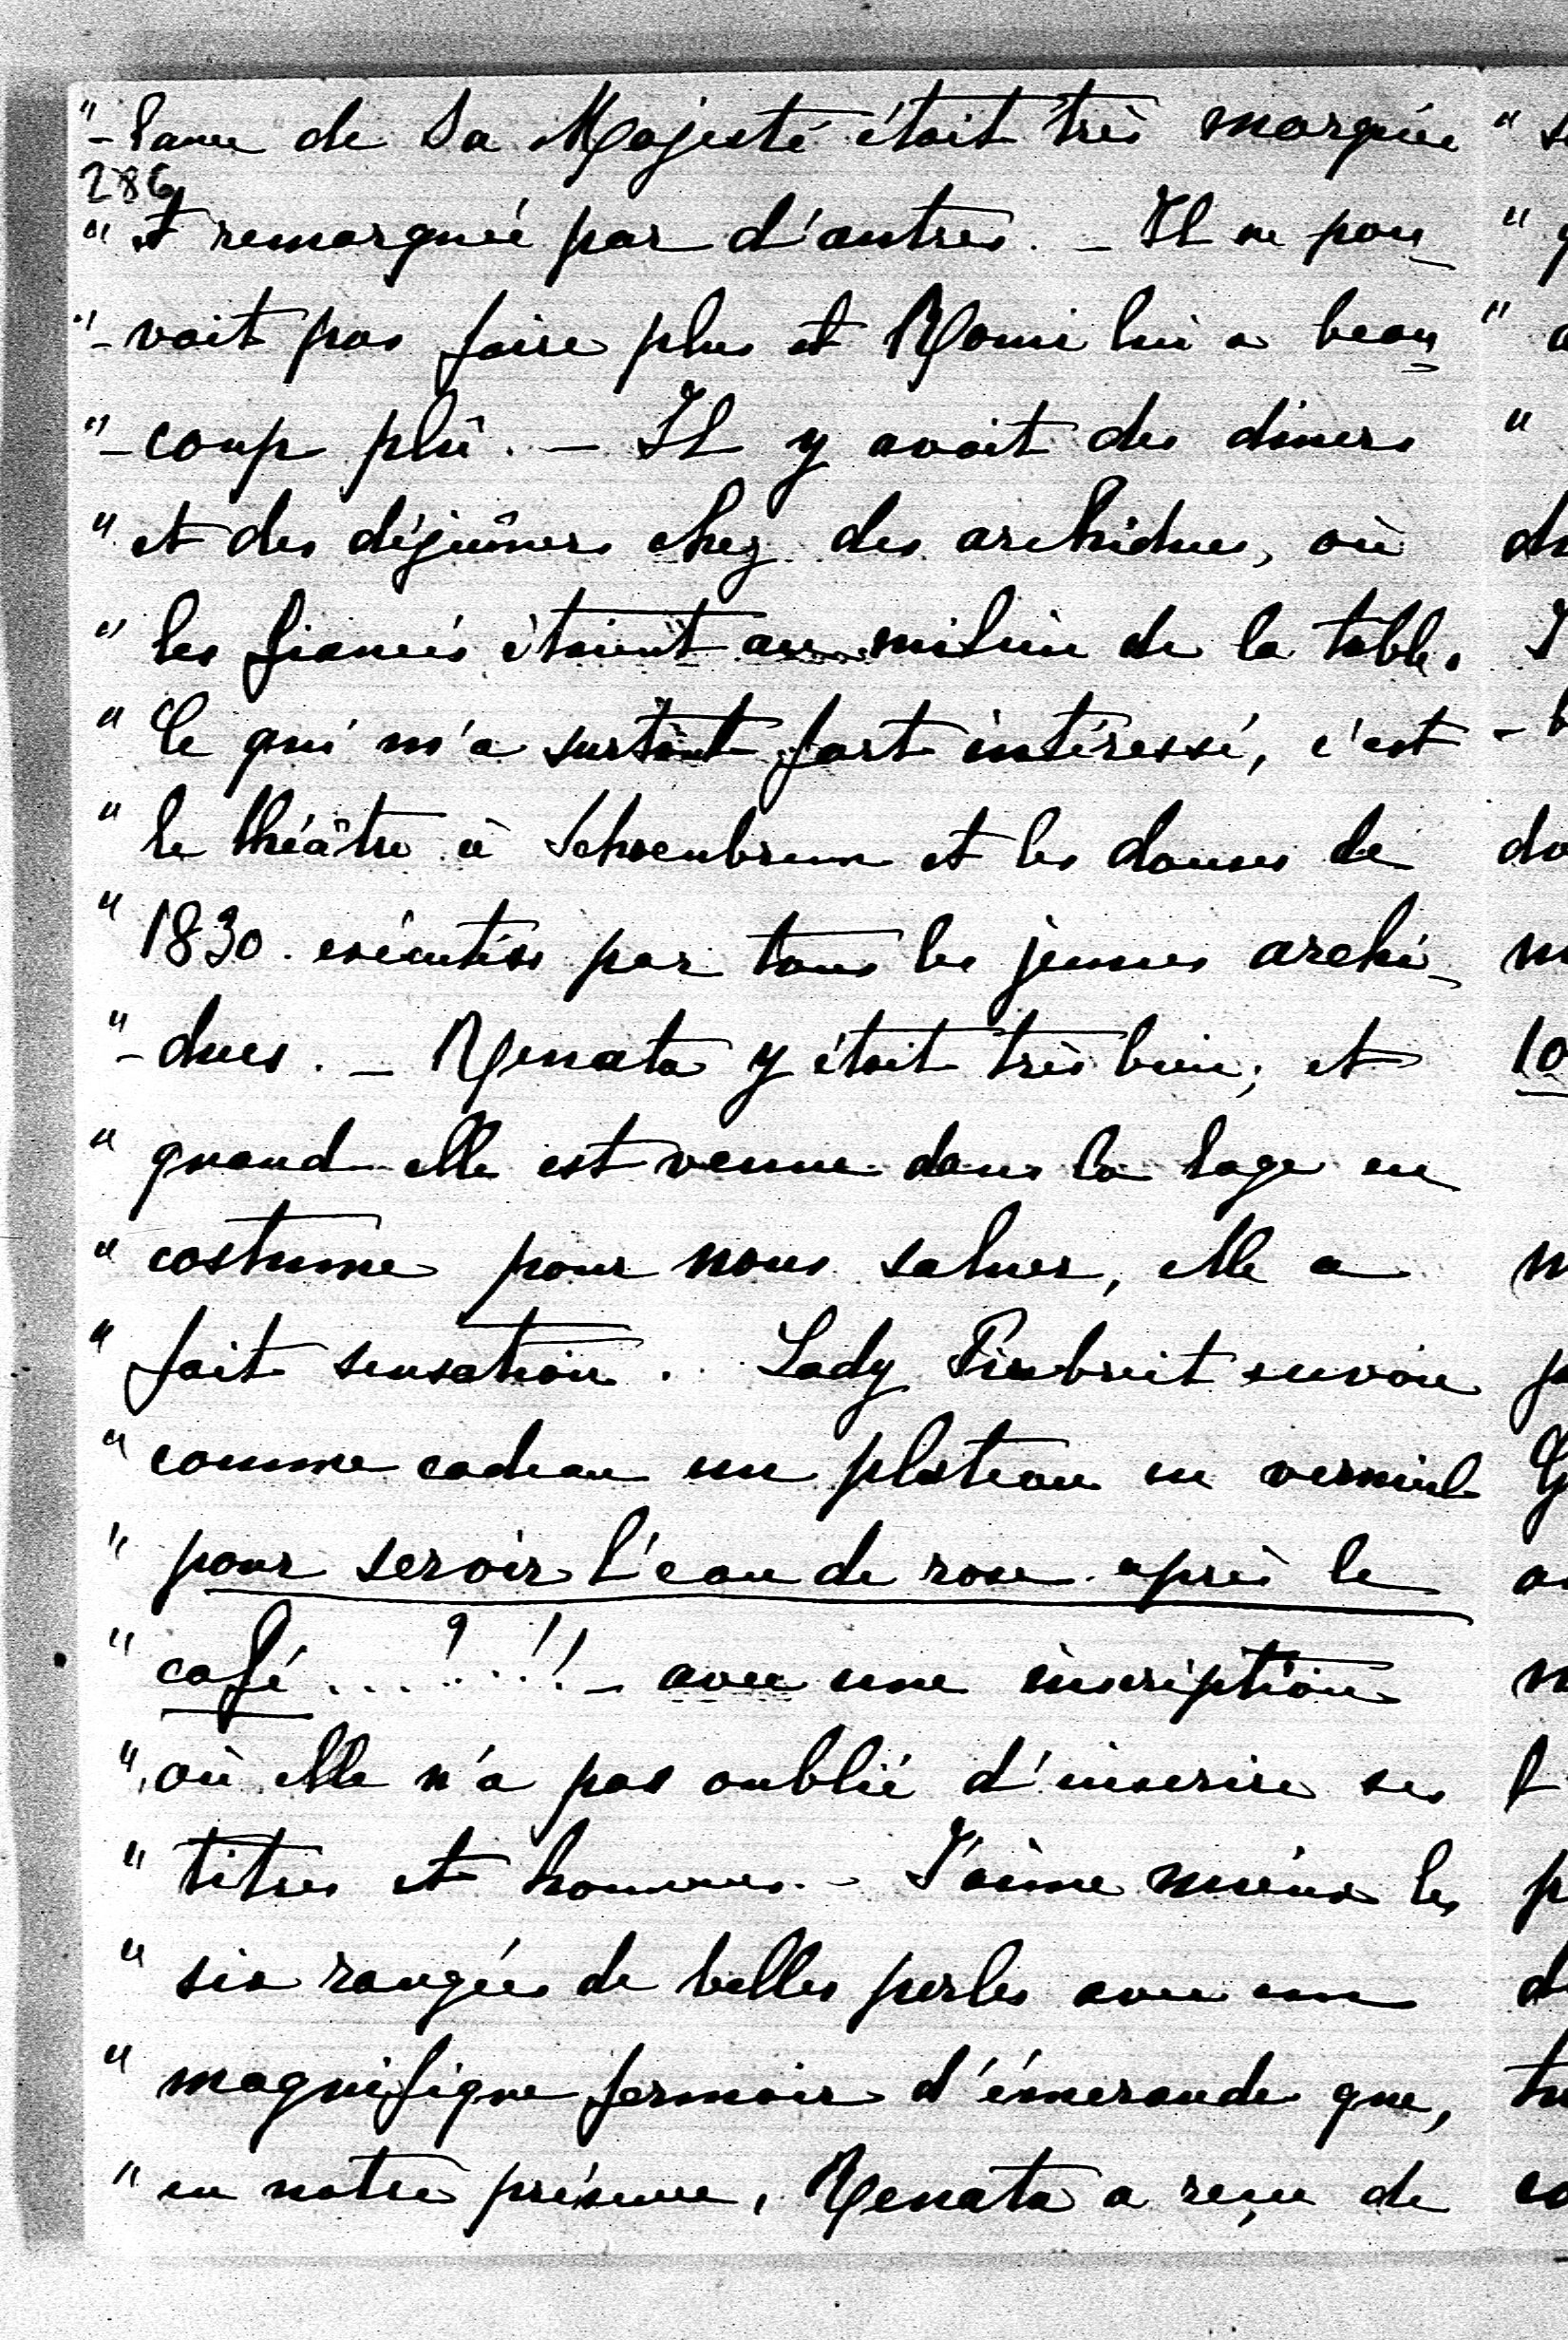 "-lance de Sa Majesté était très marquée
286
" et remarquée par d'autres. - Il ne pou-
"-vait pas faire plus et Romi lui a beau-
"-coup plû. - Il y avait des diners
" et des déjeûners chez des archiducs, où
" les fiancés étaient au milieu de la table.
" Ce qui m'a surtout fort intéressé, c'est
" le théâtre à Schoenbrunn et les danses de
" 1830 exécutées par tous les jeunes archi-
"-ducs. - Renata y était très bien; et
" quand elle est venue dans la loge en
" costume pour nous saluer, elle a
" fait sensation. Lady envoie
" comme cadeau un plateau en vermeil
" pour servir l'eau de rose après le
" café...?..!! - avec une inscription
" où elle n'a pas oublié d'inscrire ses
" titres et honneurs. - J'aime mieux les
" six rangées de belles perles avec un
" magnifique fermoir d'émeraude que,
" en notre présence, Renata a reçu de